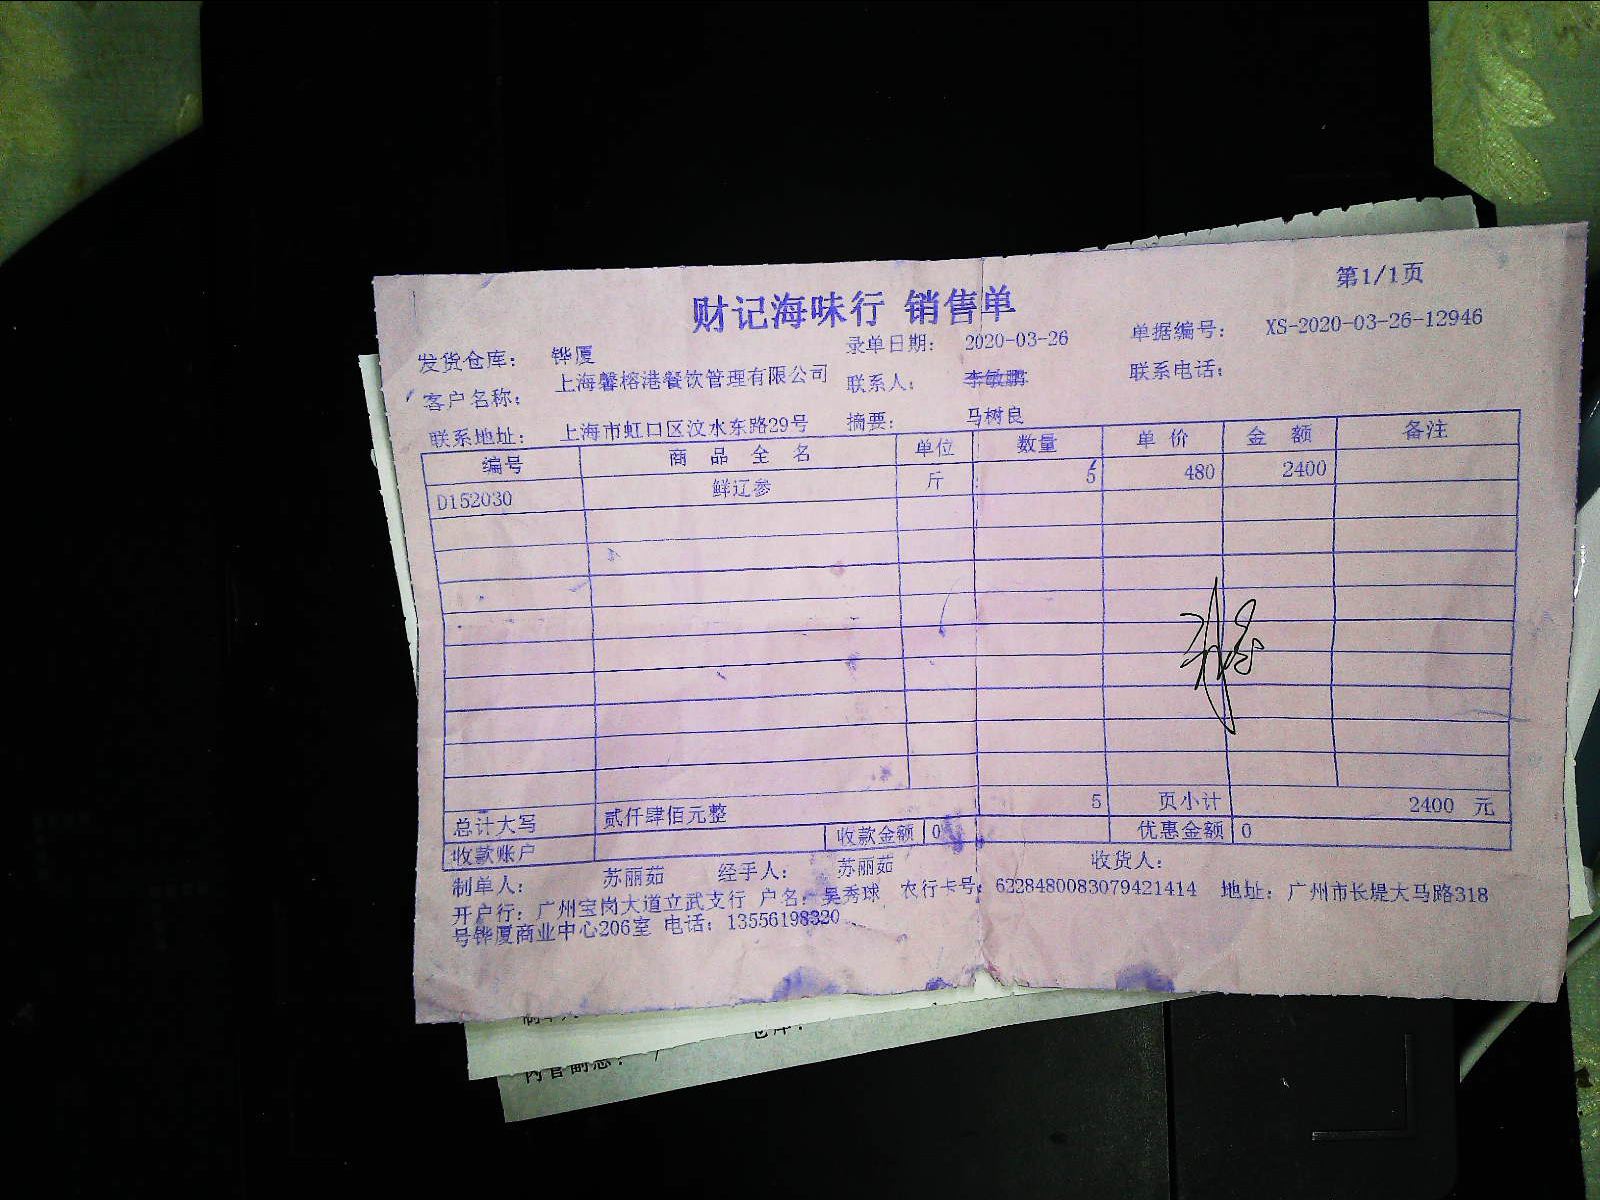 第1/1页
财记海味行 销售单
发货仓库： 铧厦 录单日期： 2020-03-26 单据编号： XS-2020-03-26-12946
客户名称： 上海馨榕港餐饮管理有限公司 联系人： 李敏鹏 联系电话：
联系地址： 上海市虹口区汶水东路29号 摘要： 马树良
编号 商 品 全 名 单位 数量 单 价 金 额 备注
D152030 鲜辽参 斤 5 480 2400
总计大写 贰仟肆佰元整 5 页小计 2400 元
收款账户 收款金额 0 优惠金额 0
制单人： 苏丽茹 经手人： 苏丽茹 收货人：
开户行：广州宝岗大道立武支行 户名：吴秀球 农行卡号：6228480083079421414 地址：广州市长堤大马路318
号铧厦商业中心206室 电话：13556198320